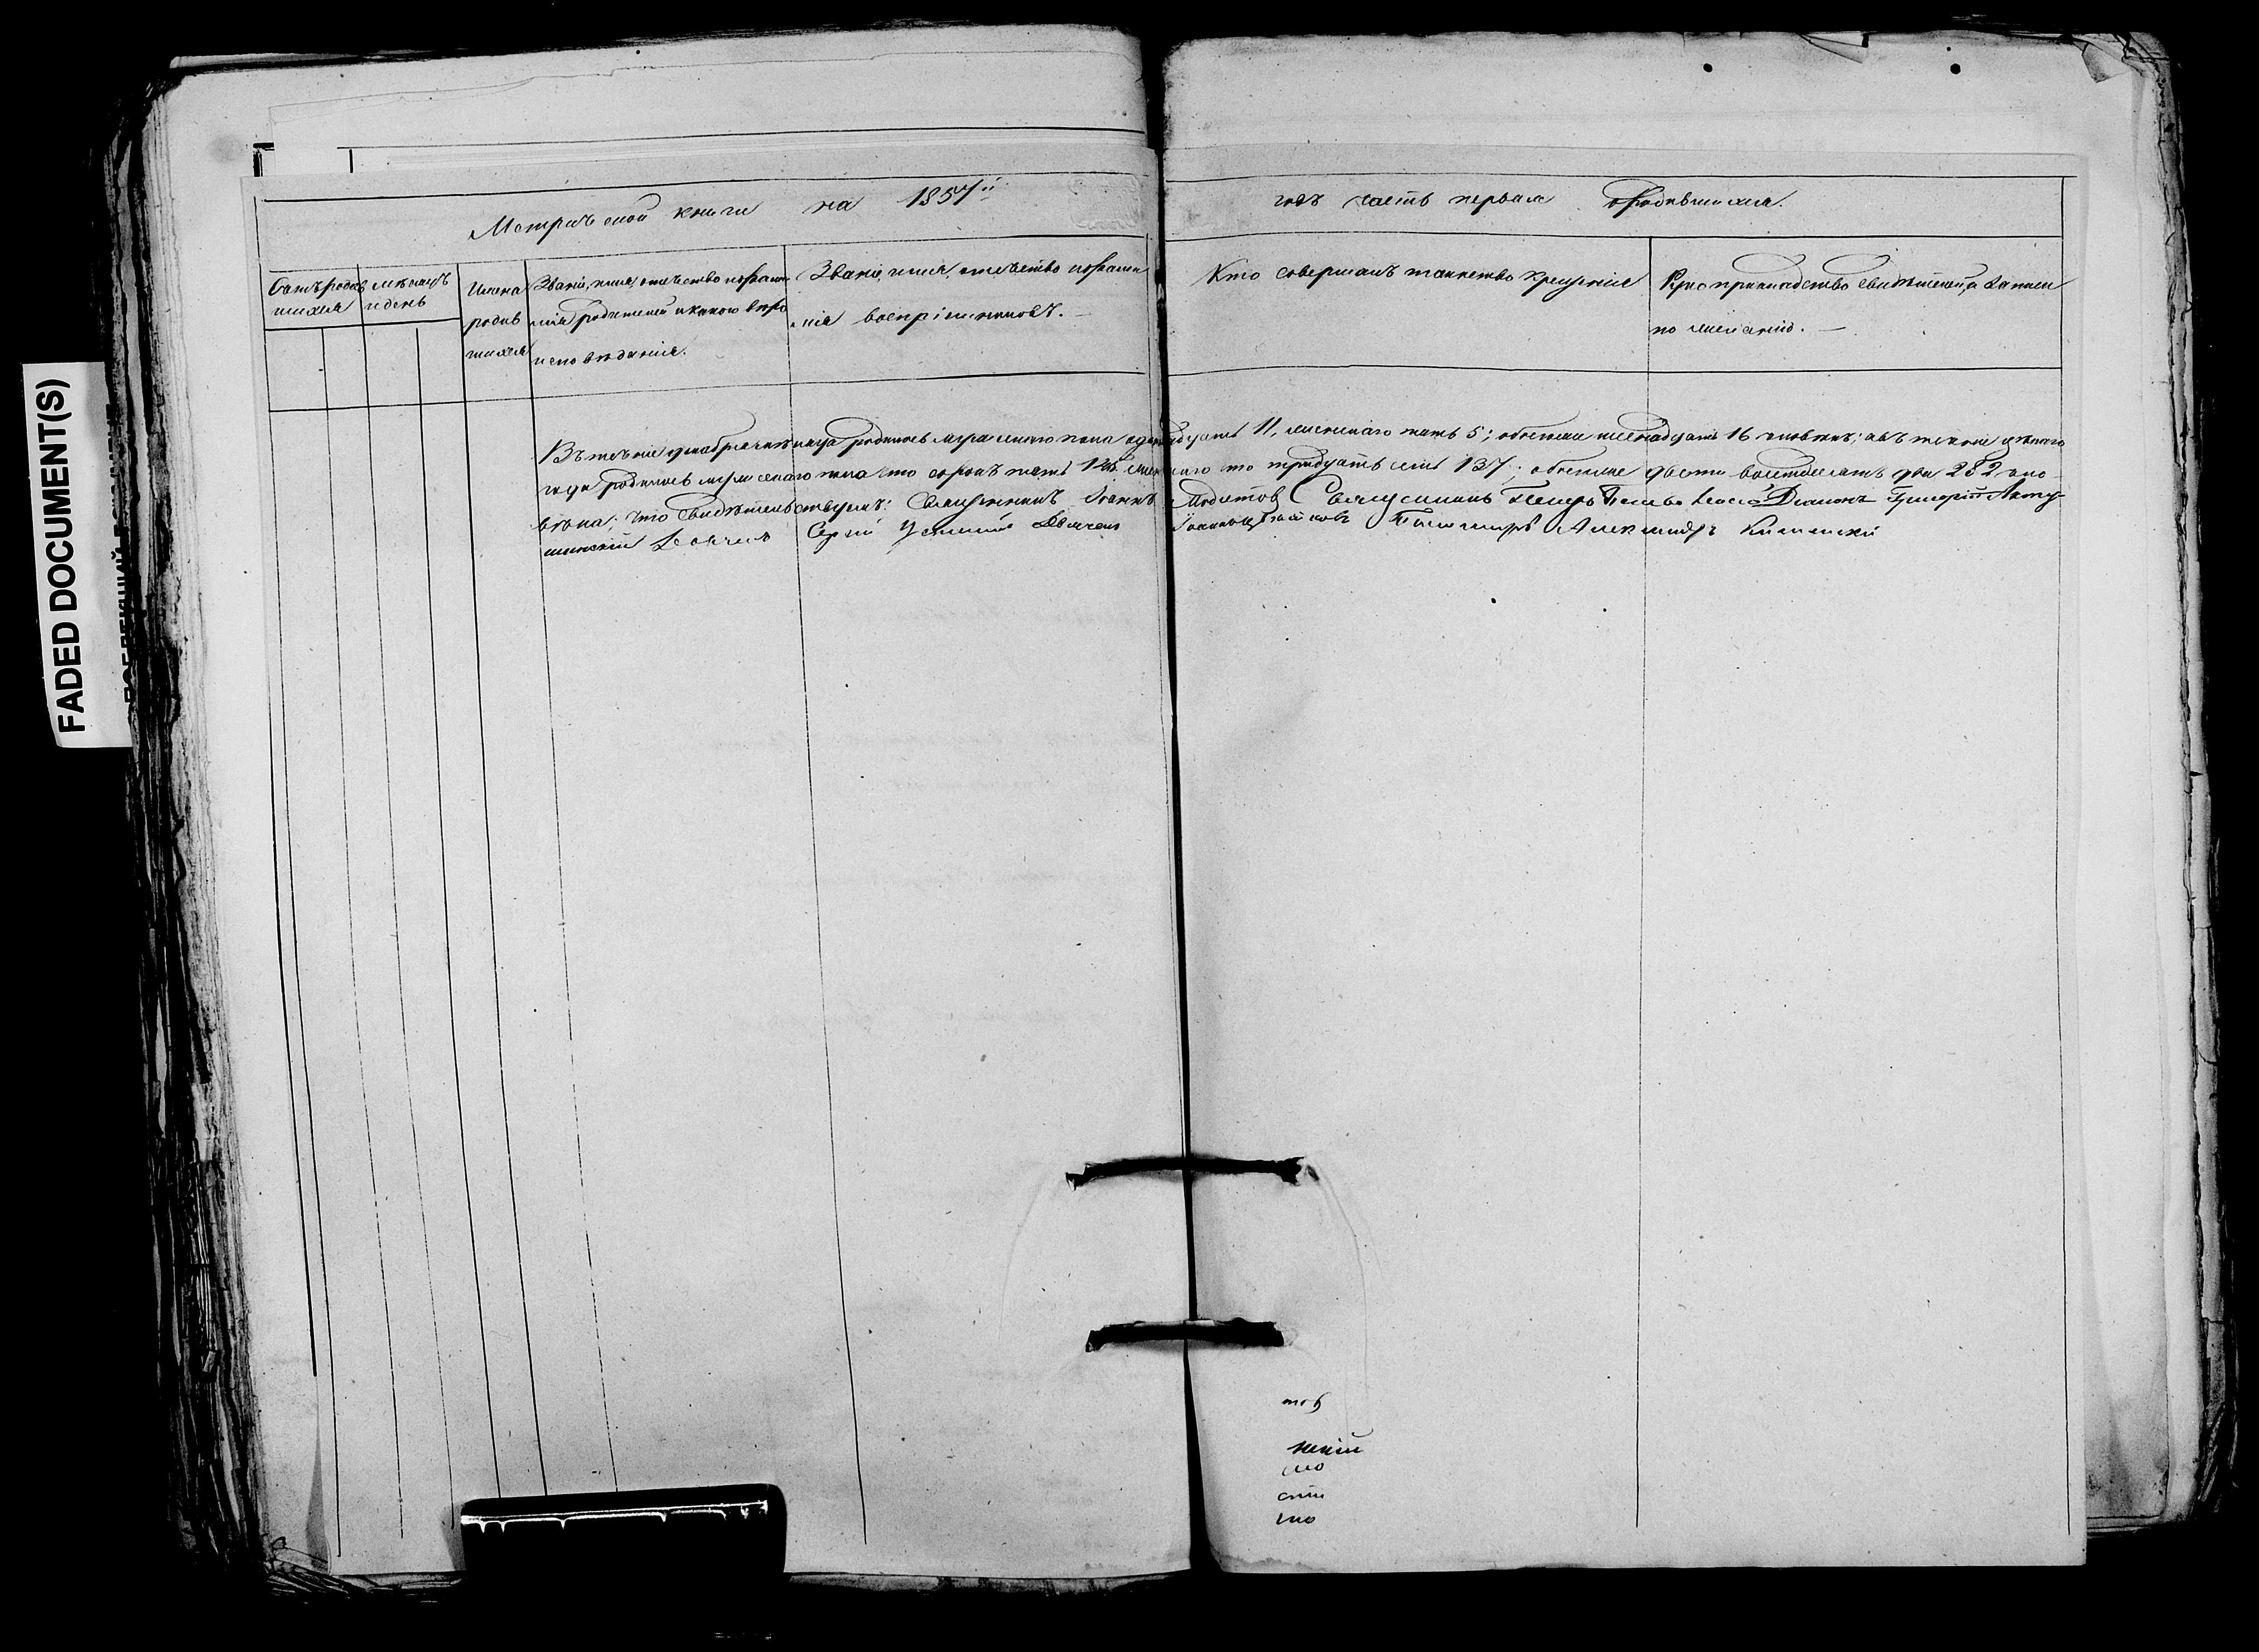 FADED DOCUMENT(S)
Метрической книги на 1857й годъ часть первая о родившихся.
Счетъ родив шихся
мѣсяцъ и день
Имена родив шихся
Званіе, имя, отчество и фами
лія родителей и какого вѣро
исповѣданія.
Званіе, имя, отчество и фами
лія воспріимниковъ.
Кто совершалъ таинство крещенія
Рукоприкладство свидѣтелей записи
по желанію.
Въ теченіе декабря мѣсяца родилось мужескаго пола одинадцать 11, женскаго пять 5; обоегога шеснадцать 16 человѣкъ; а въ теченіе цѣлаго
года родилось мужескаго пола сто сорокъ пять 145, женскаго сто тридцать семь 137; обоего двѣсти восемдесятъ два 282 чело
вѣка; что свидѣтельствуемъ: Священникъ Іоаннъ Модестов Священникъ Діаконъ Григорій
Дьячекъ Сергій Дьячекъ Пономарь Александръ
тов
скій
сно
скій
сно